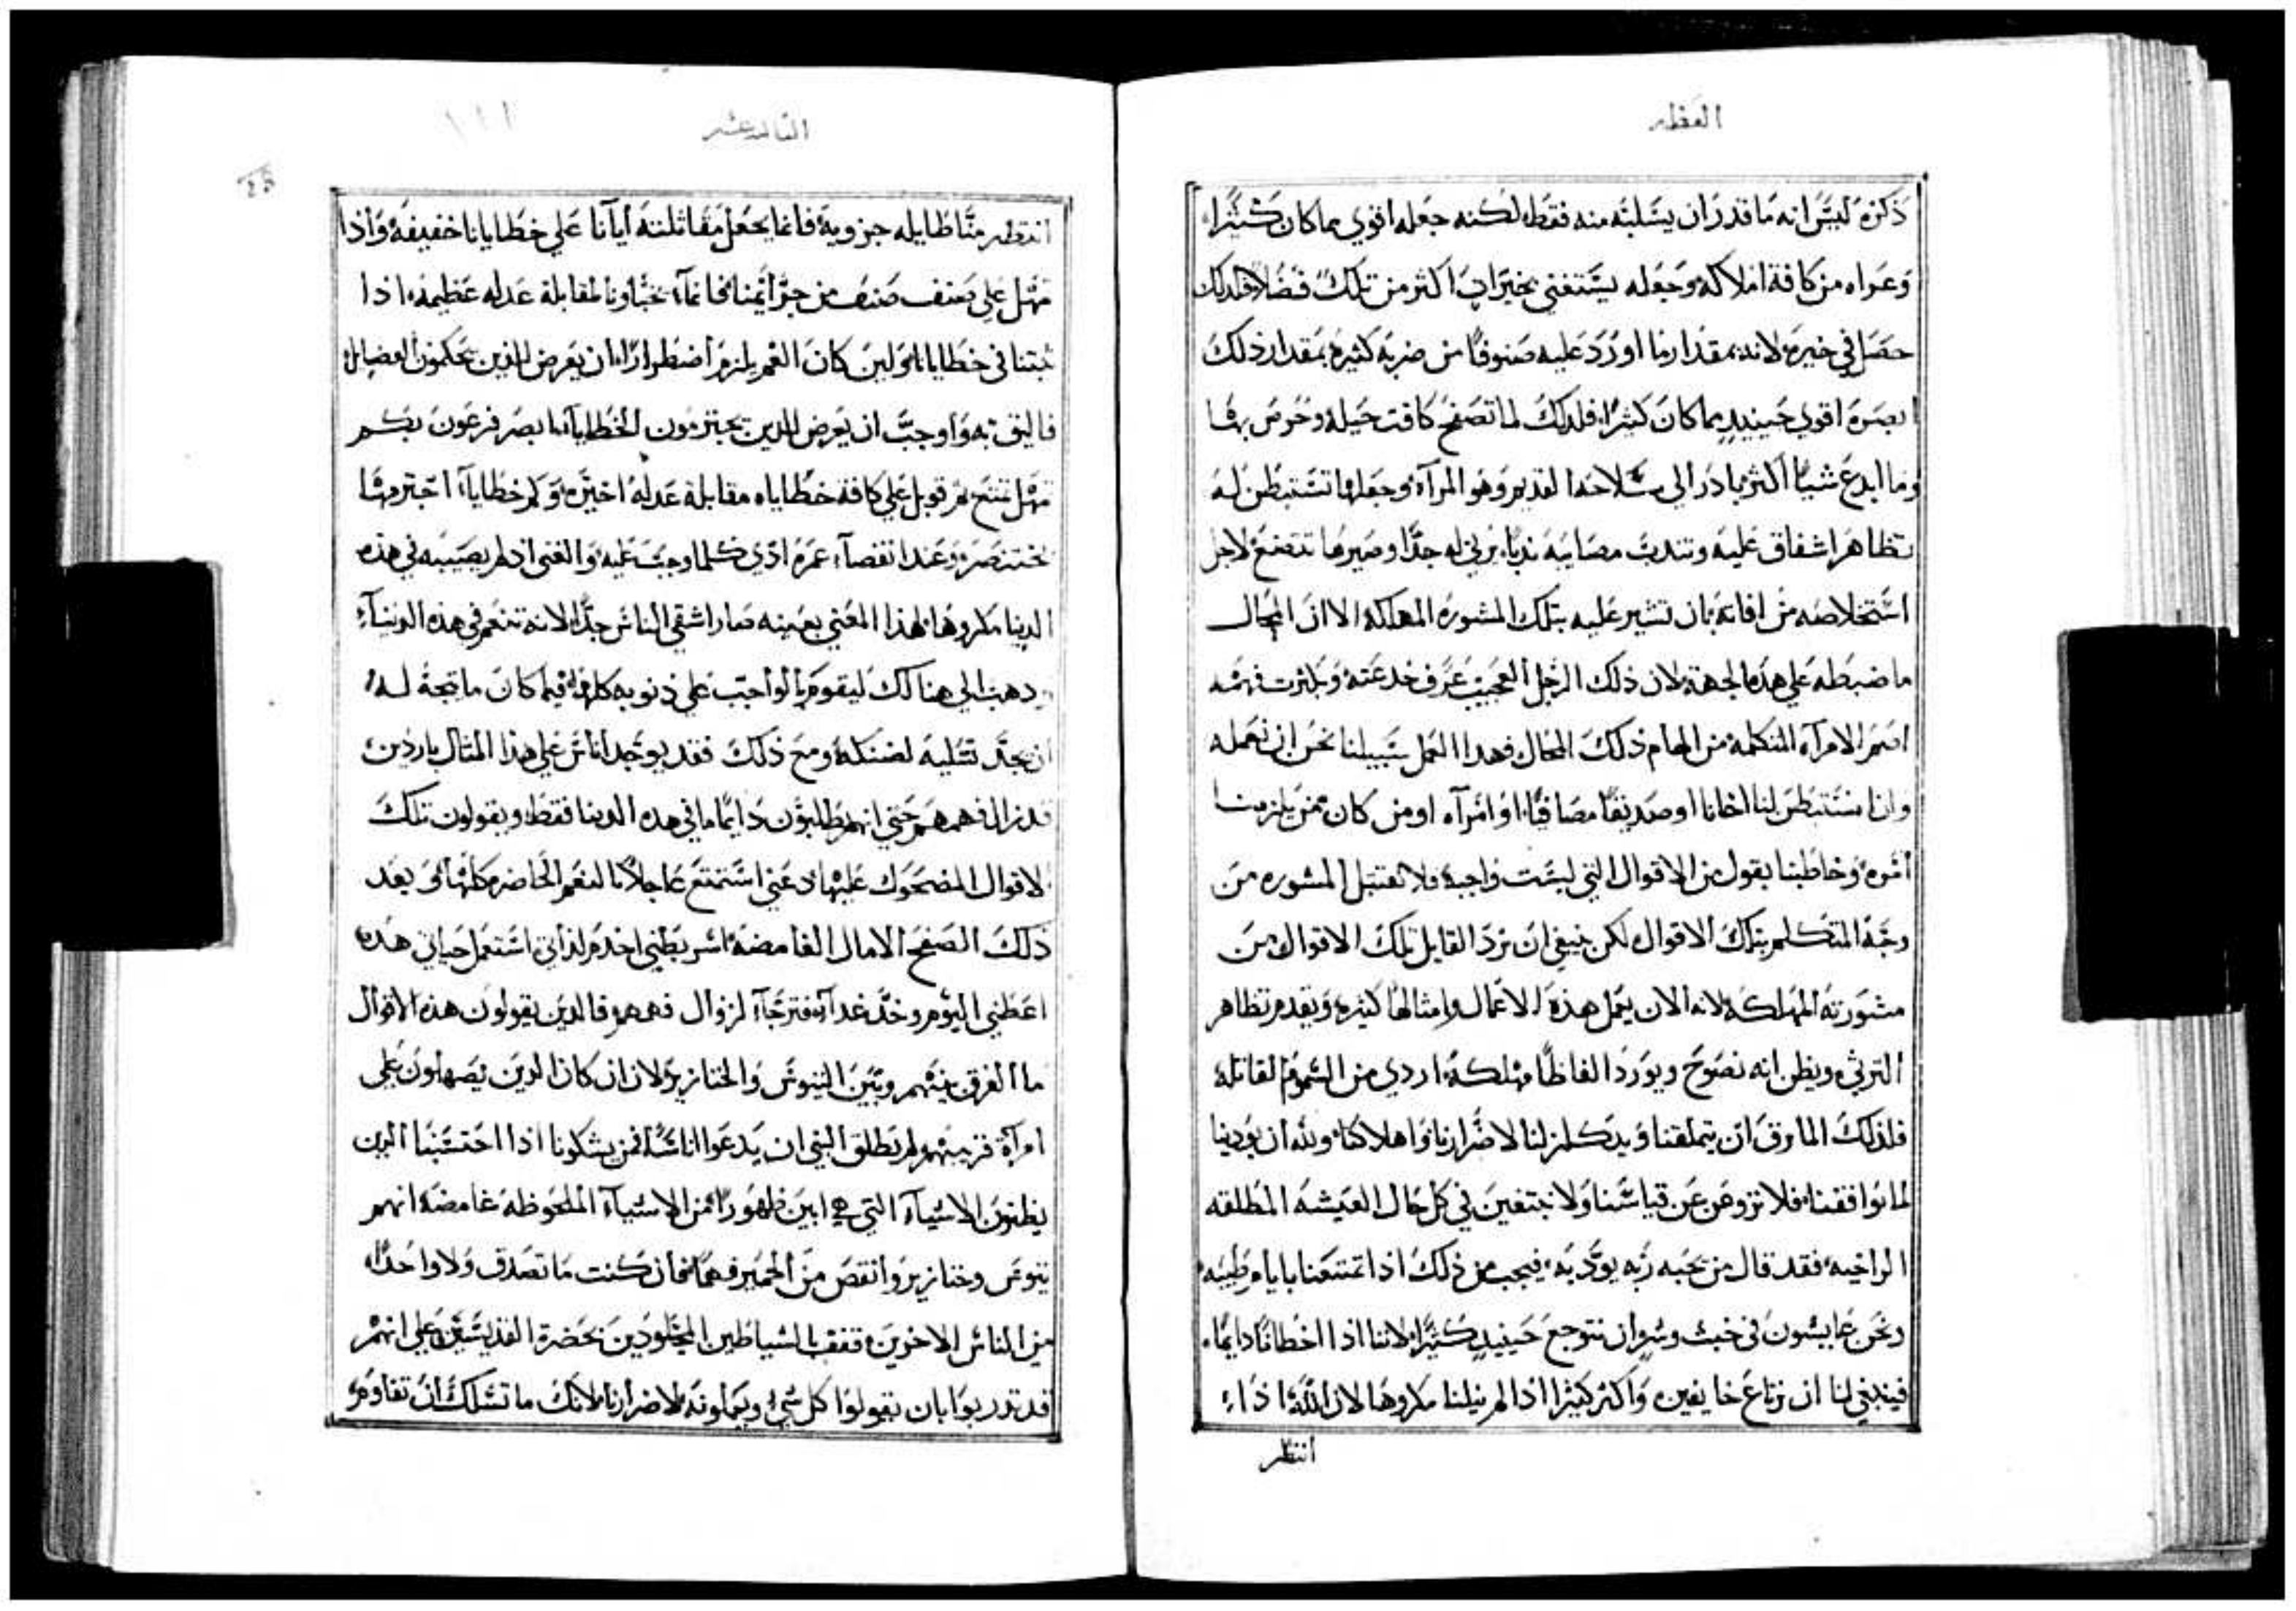 العظه
ذكره ليس انه ما قدر ان يسلبه منه فقط لكنه جعله اقوي مما كان كثيرا
وعراه من كافة املاكه وجعله يستغني بخيرات اكثر من تلك فضلا فلذلك
حصل في حيره لانه بمقدار ما اورد عليه صنوفا من ضربه كثيره بمقدار ذلك
ابصره اقوي حينيد مما كان كثيرا فلذلك لما تصفح كافت حيله وخوص بها
وما ابدع شيا اكثر بادر الي سلاحه القديم وهو المرآه وجعلها تستبطن له
تظاهر اشفاق عليه وتندب مصايبه ندبا يرني له جدا وصيرها تتصنع لاجل
استخلاصه من افاته بان تشير عليه بتلك المشوره المهلكه الا ان المحال
ما ضبطه علي هذه الجهة لان ذلك الرجل العجيب عرف خدعته وبكثرت فهمه
افحم الامرآه المتكلمه من الهام ذلك المحال فهدا العمل سبيلنا نحن ان نعمله
وان استبطن لنا اخانا او صديقا مصافيا او امرآه او من كان ممن يلزمنا
امره وخاطبنا بقول من الاقوال التي ليست واجبه فلا نقتبل المشوره من
وجه المتكلم بتلك الاقوال لكن ينبغي ان نرد القايل تلك الاقوال من
مشورته المهلكه لانه الان يعمل هذه الاعمال وامثالها كثيره ويقدم تظاهر
الترثي ويظن انه نصوح ويورد الفاظا مهلكه اردي من السموم القاتله
فلذلك المارق ان يتملقنا ويتكلم لنا لاضرارنا واهلاكنا ولله ان يودبنا
لما يوافقنا فلا نزوغن عن قياسنا ولا نبتغين في كل حال العيشه المطلقه
الراخيه فقد قال من يحبه ربه يودبه فيجب من ذلك اذا تمتعنا بايام طيبه
ونحن عايشون في خبث وشر ان نتوجع حينيد كثيرا لاننا اذا اخطانا دايما
فينبغي لنا ان نرتاع خايفين واكثر كثيرا اذا لم ينلنا مكروها لان الله اذا
انتظر
الثالثه عشر
١١١
انتظر منا طايله جزويه فانما يجعل مقاتلته ايانا علي خطايانا خفيفه واذا
تمهل علي صنف صنف من جرايمنا فانما يخباونا لمقابلة عدله عظيمه اذا
ثبتنا في خطايانا لين كان الغم يلزم اضطرارا ان يعرض للذين يحكمون الفضايل
فاليق به واوجب ان يعرض للذين يجترمون الخطايا اما بصر فرعون بكم
تمهل تمتع ثم قوبل علي كافة خطاياه مقابلة عدله اخيره وكم خطايا اجترمها
بختنصر وعند انقضآ عمره ادي كلما وجب عليه والغني اذ لم يصيبه في هذه
الدنيا مكروها لهذا المعني بعينه صار اشقي الناس جدا لانه تنعم في هذه الدنيآ
وذهب الي هنالك ليقوم بالواجب علي ذنوبه كلها فيما كان ما يتجه له
ان يجد تسليه لضنكه ومع ذلك فقد يوجد اناس علي هذا المثال باردين
قد زال فهمهم حتي انهم يطلبون دايما ما في هذه الدنيا فقط ويقولون تلك
الاقوال المضحوك عليها دعني استمتع عاجلا بالنعم الحاضره كلها وبعد
ذلك اتصفح الامال الغامضه اشر بطني اخدم لذاتي استعمل حياتي هذه
اعطني اليوم وخذ غدا آه فترجآ لزوال فهمهم فالذين يقولون هذه الاقوال
ما الفرق بينهم وبين التيوس والخنازير ولان ان كان الذين يصهلون علي
امرآة قريبهم لم يطلق النبي ان يدعوا اناسا فمن يشكونا اذا احتسبنا الذين
يظنون الاشيآ التي هي ابين ظهورا من الاشيآ الملحوظه غامضه انهم
تيوس وخنازير وانقص من الحمير فهما فان كنت ما تصدق ولا واحدا
من الناس الاخرين فقف بالشياطين المجلودين بحضرة القديسين علي انهم
قد تدربوا بان يقولوا كل شي ويعملونه لاضرارنا لانك ما تسلك ان تقاوم